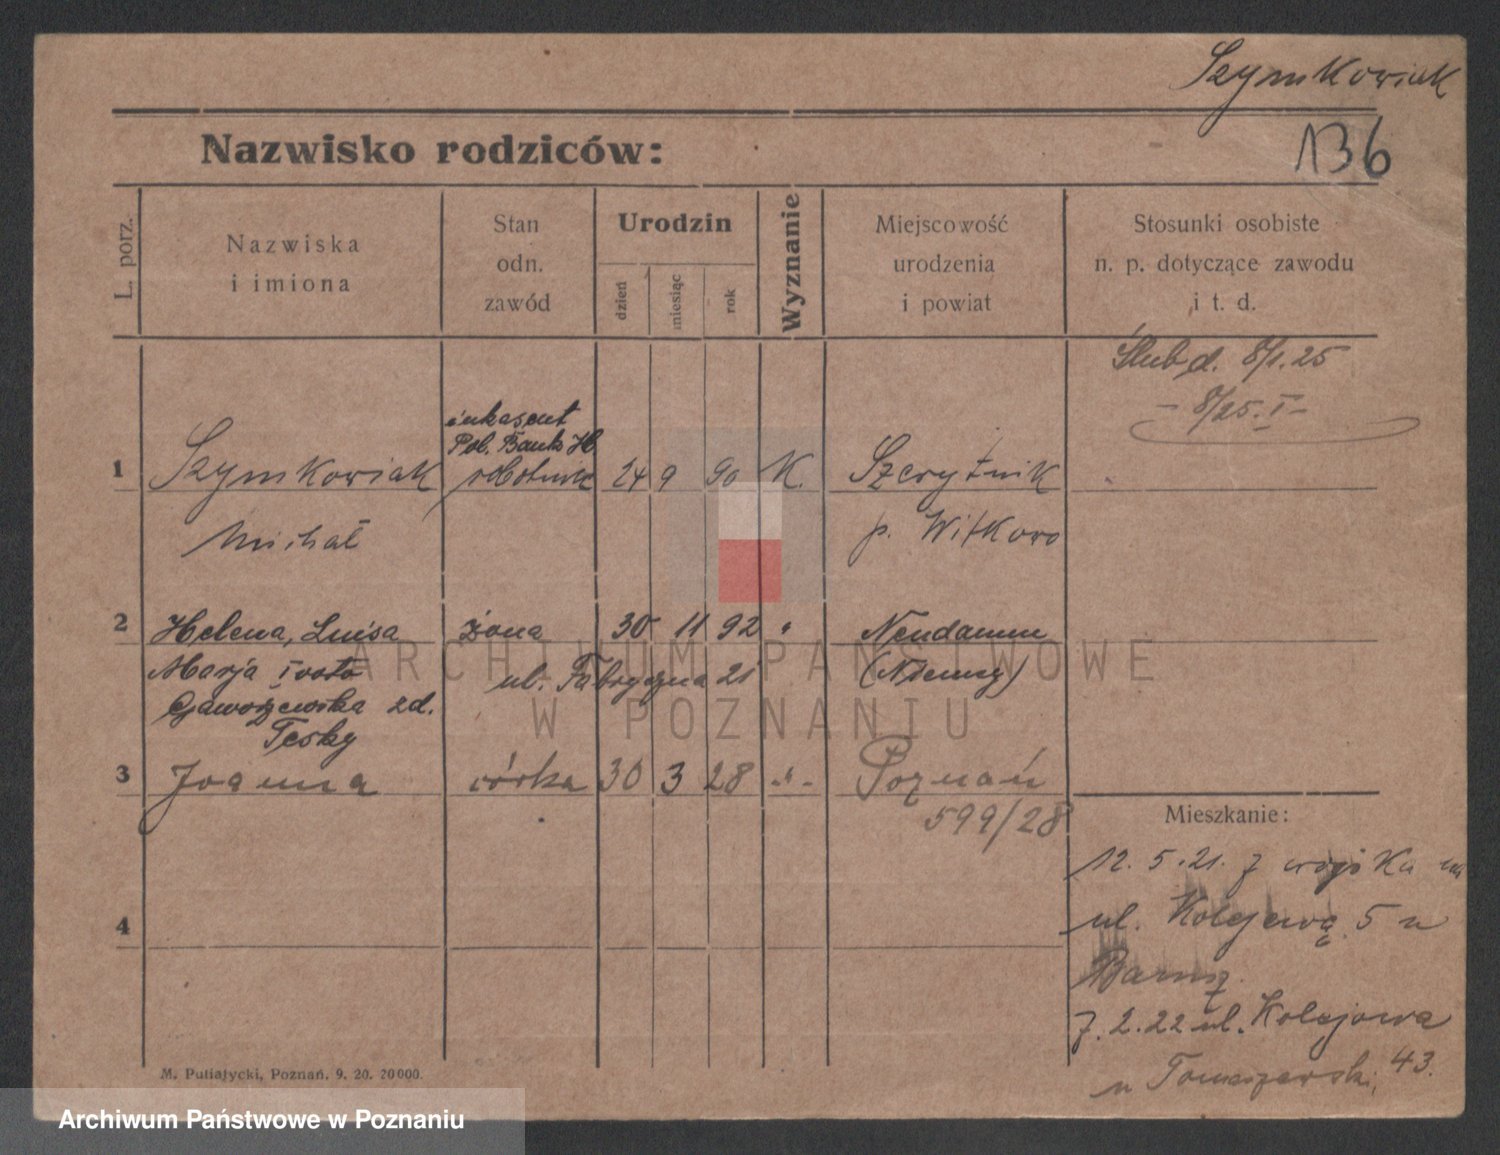 Szymkowiak
136
Nazwisko rodziców:
L. porz.
Nazwiska
i imiona
Stan
odn.
zawód
Urodzin
dzień
miesiąc
rok
Wyznanie
Miejscowość
urodzenia
i powiat
Stosunki osobiste
n. p. dotyczące zawodu
i t. d.
Ślub d. 8/1.25
- 8/25. I -
inkasent
Pol. Bank H
1 Szymkowiak robotnik 24 9 90 K. Szczytnik
Michał p. Witkowo
2 Helena, Luisa żona 30 11 92 " Neudamm
Marja I voto ul. Fabryczna 21 (Niemcy)
Gaworzewska zd.
Tesky
3 Joanna córka 30 3 28 -"- Poznań
599/28
Mieszkanie:
12. 5. 21. z wojska na
ul. Kolejową 5 u
7. 2. 22 ul. Kolejowa
43.
u Tomaszewski,
4
M. Putiatycki, Poznań. 9. 20. 20000.
ARCHIWUM PAŃSTWOWE
W POZNANIU
Archiwum Państwowe w Poznaniu